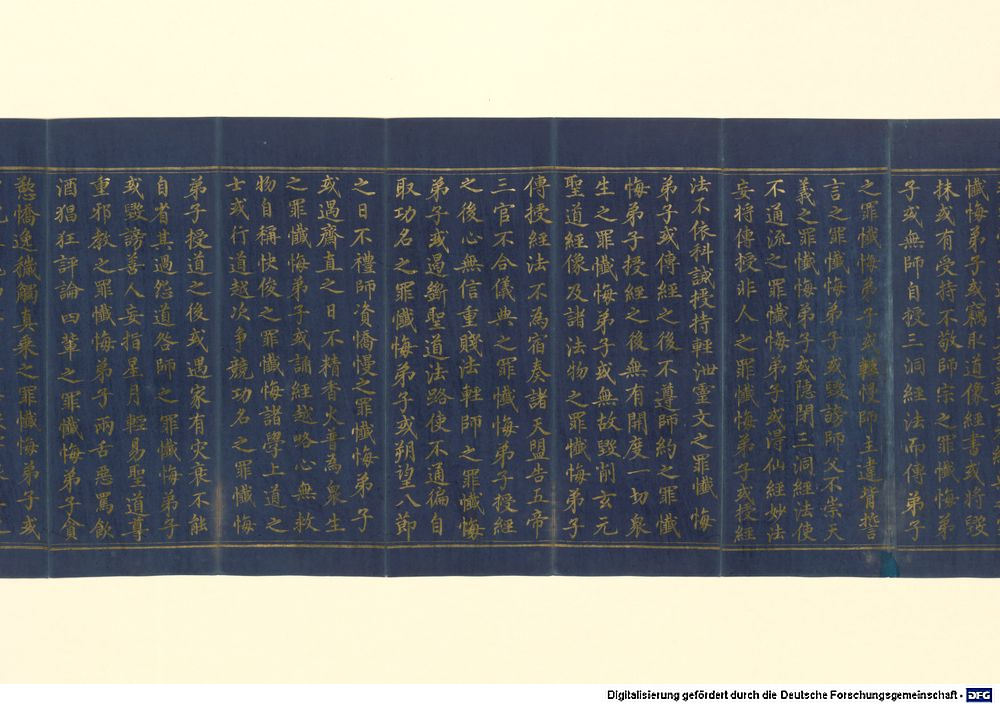 懺悔弟子或竊取道像經書或將毀
抹或有受持不敬師宗之罪懺悔弟
子或無師自授三洞經法而傳弟子
之罪懺悔弟子或輕慢師主違背誓
言之罪懺悔弟子或毀謗師父不崇天
義之罪懺悔弟子或隱閉三洞經法使
不通流之罪懺悔弟子或得仙經妙法
妄將傳授非人之罪懺悔弟子或授經
法不依科誡授持輕泄靈文之罪懺悔
弟子或傳經之後不遵師約之罪懺
悔弟子授經之後無有開度一切眾
生之罪懺悔弟子或無故毀削玄元
聖道經像及諸法物之罪懺悔弟子
傳授經法不為宿奏諸天盟告五帝
三官不合儀典之罪懺悔弟子授經
之後心無信重賤法輕師之罪懺悔
弟子或遏斷聖道法路使不通徧自
取功名之罪懺悔弟子或朔望八節
之日不禮師資憍慢之罪懺悔弟子
或遇齋直之日不精香火善為眾生
之罪懺悔弟子或誦經越略心無救
物自稱快俊之罪懺悔諸學上道之
士或行道越次爭競功名之罪懺悔
弟子授道之後或遇家有災衰不能
自省其過怨道咎師之罪懺悔弟子
或毀謗善人妄指星月輕易聖道尊
重邪教之罪懺悔弟子兩舌惡罵飲
酒猖狂評論四輩之罪懺悔弟子貪
慾憍逸穢觸真乘之罪懺悔弟子或
Digitalisierung gefördert durch die Deutsche Forschungsgemeinschaft - DFG